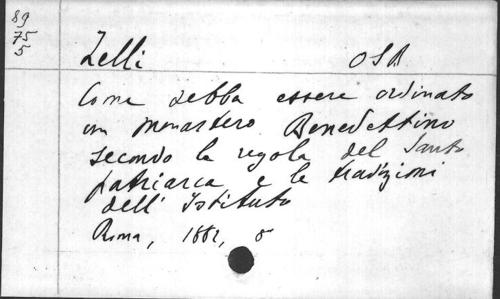 89
75
5
Zelli OSB
Come debba essere ordinato
un monastero Benedettino
secondo la regola del Santo
patriarca e le tradizioni
dell' Istituto
Roma, 1882, 8